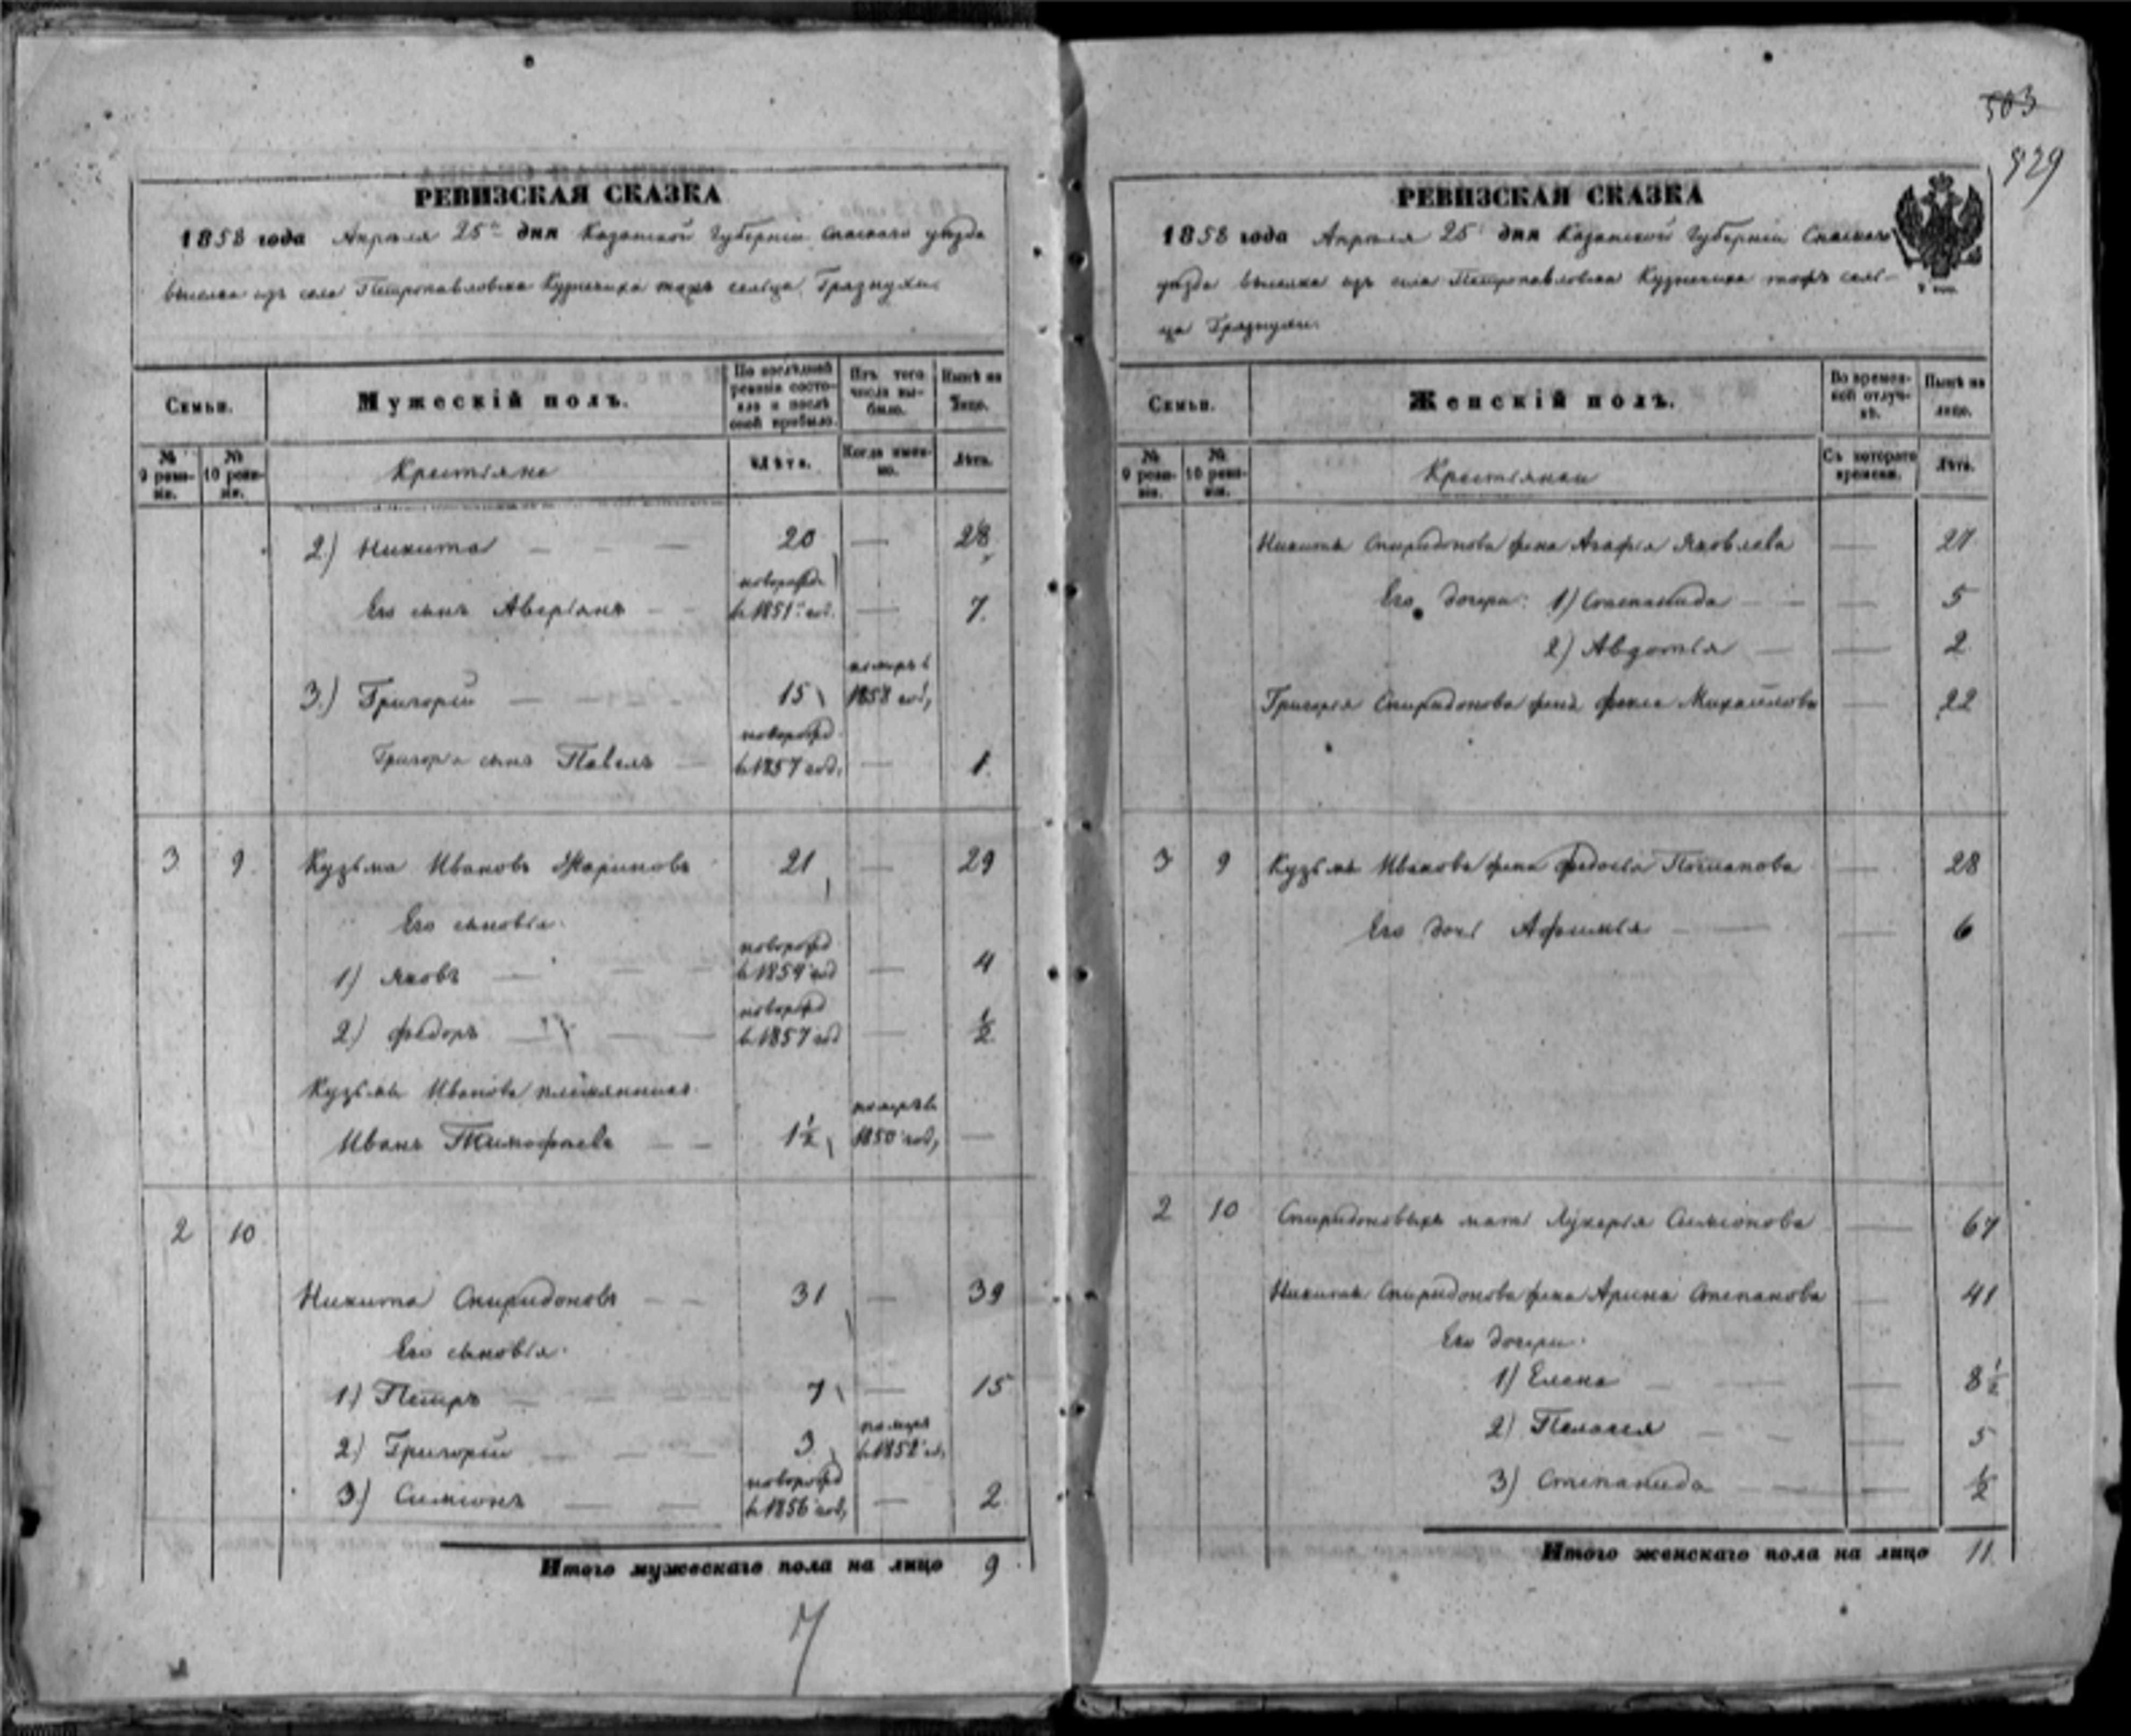 РЕВИЗСКАЯ СКАЗКА
1858 года Апреля 25го дня Казанской Губернии Спаского уезда
выселка изъ села Петропавловска Кузнечиха тожъ сельца Грязнухи
Семьи.
Мужескій полъ.
По последней ревизіи состояло и после оной прибыло.
Изъ того числа выбыло.
Ныне на лицо.
№ 9 ревизіи.
№ 10 ревизіи.
Крестьяне
Лета.
Когда именно.
Лета.
2.) Никита — 20 — 28
Его сынъ Аверьянъ — новорожд. въ 1851м год. — 7.
3.) Григорій — 15 померъ въ 1858 год,
Григорья сынъ Павелъ — новорожд въ 1857 год, — 1.
3 9. Кузьма Ивановъ 21 — 29
Его сыновья:
1) Яковъ — новорожд въ 1854 год — 4
2.) Федоръ — новорожд въ 1857 год — ½
Кузьмы Иванова племянникъ
Иванъ Тимофеевъ — 1½ померъ въ 1850 год, —
2 10
Никита Спиридоновъ — 31 — 39
Его сыновья:
1) Петръ — 7 — 15
2.) Григорій — 3 померъ въ 1852 г.
3.) Симіонъ — новорожд въ 1856 год, — 2.
Итого мужескаго пола на лицо 9
7
503
РЕВИЗСКАЯ СКАЗКА
1858 года Апреля 25 дня Казанской Губерніи Спаскаго
уезда выселка изъ села Петропавловска Кузнечиха тожъ сель-
ца Грязнухи.
Семьи.
Женскій полъ.
Во времен-
ной отлуч-
ке.
Ныне на
лицо.
№ 9 ревизіи.
№ 10 ревизіи.
Крестьянки
Съ котораго
времени.
Лета.
Никиты Спиридонова жена Агафья Яковлева — 27
Его дочери: 1) Степанида — 5
2) Авдотья — 2
Григорья Спиридонова жена Фекла Михайлова — 22
3 9 Кузьмы Иванова жена Федосья — 28
Его дочь Афимья — 6
2 10 Спиридоновыхъ мать Лукерья Симіонова — 67
Никиты Спиридонова жена Арина Степанова — 41
Его дочери:
1) Елена — 8½
2) Пелагея — 5
3) Степанида — ½
Итого женскаго пола на лицо 11.